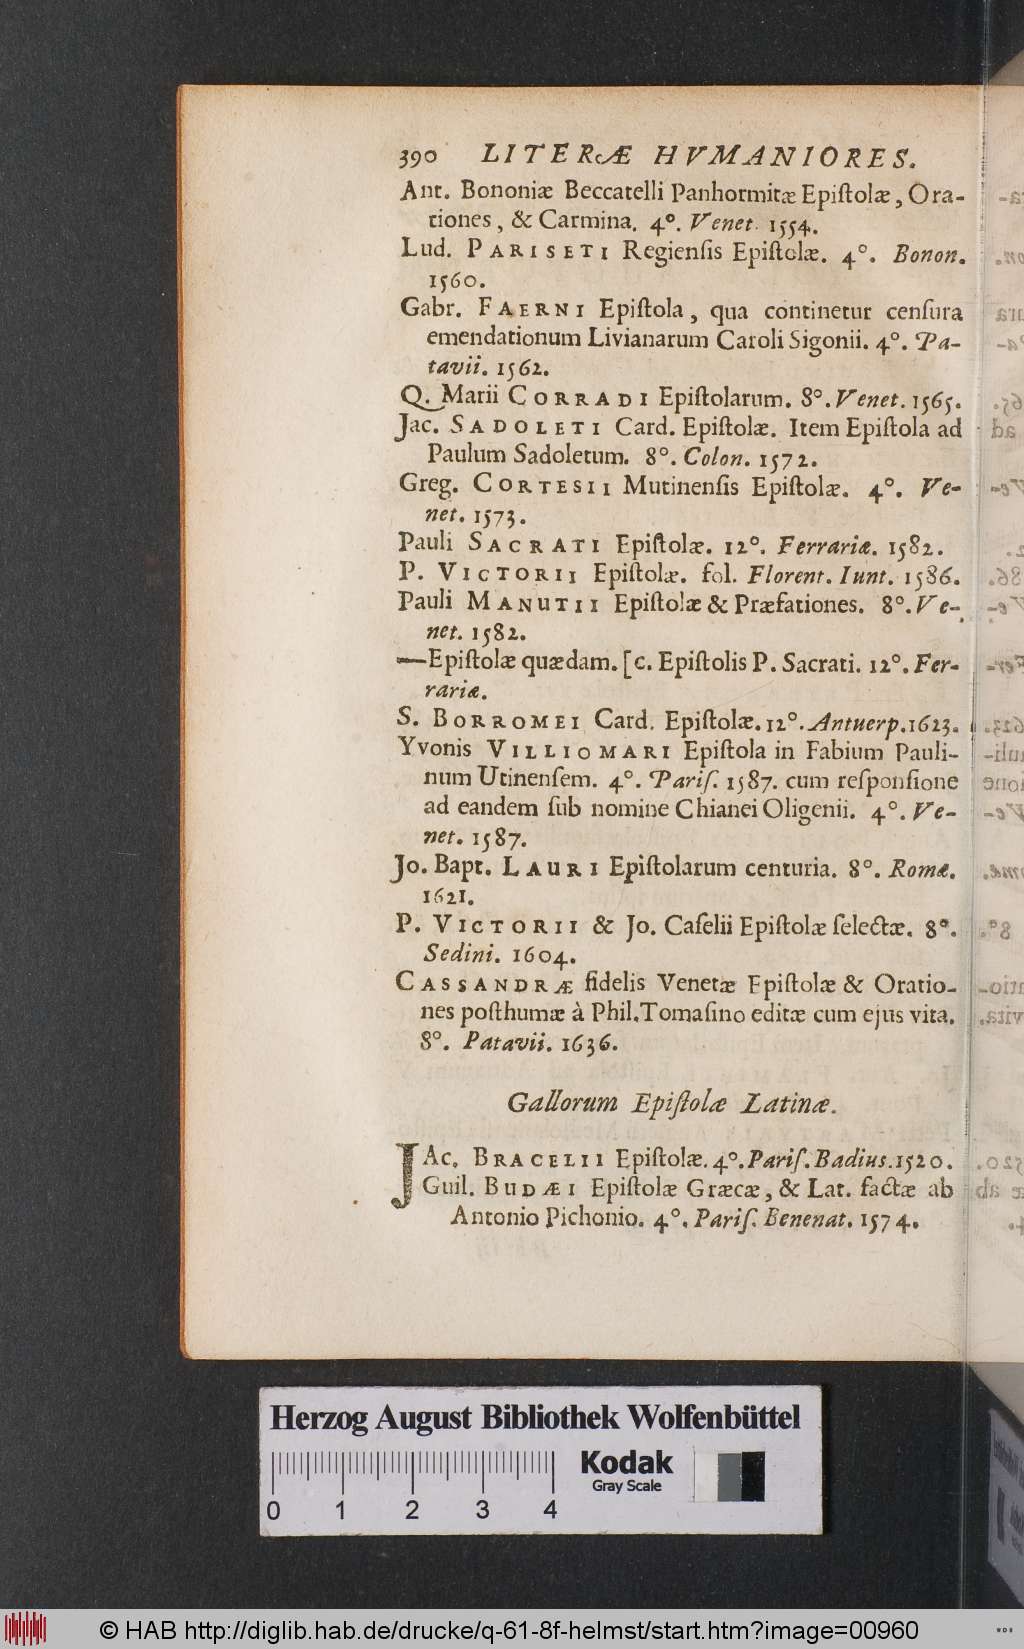 390 LITERÆ HVMANIORES.
Ant. Bononiæ Beccatelli Panhormitæ Epiſtolæ, Ora-
tiones, & Carmina. 4°. Venet. 1554.
Lud. PARISETI Regienſis Epiſtolæ. 4°. Bonon.
1560.
Gabr. FAERNI Epiſtola, qua continetur cenſura
emendationum Livianarum Caroli Sigonii. 4°. Pa-
tavii. 1562.
Q. Marii CORRADI Epiſtolarum. 8°. Venet. 1565.
Jac. SADOLETI Card. Epiſtolæ. Item Epiſtola ad
Paulum Sadoletum. 8°. Colon. 1572.
Greg. CORTESII Mutinenſis Epiſtolæ. 4°. Ve-
net. 1573.
Pauli SACRATI Epiſtolæ. 12°. Ferrariæ. 1582.
P. VICTORII Epiſtolæ. fol. Florent. Iunt. 1586.
Pauli MANUTII Epiſtolæ & Præfationes. 8°. Ve-
net. 1582.
—Epiſtolæ quædam. [c. Epiſtolis P. Sacrati. 12°. Fer-
rariæ.
S. BORROMEI Card. Epiſtolæ. 12°. Antuerp. 1623.
Yvonis VILLIOMARI Epiſtola in Fabium Pauli-
num Utinenſem. 4°. Pariſ. 1587. cum reſponſione
ad eandem ſub nomine Chianei Oligenii. 4°. Ve-
net. 1587.
Jo. Bapt. LAURI Epiſtolarum centuria. 8°. Romæ.
1621.
P. VICTORII & Jo. Caſelii Epiſtolæ ſelectæ. 8°.
Sedini. 1604.
CASSANDRÆ fidelis Venetæ Epiſtolæ & Oratio-
nes poſthumæ à Phil. Tomaſino editæ cum ejus vita.
8°. Patavii. 1636.
Gallorum Epiſtolæ Latinæ.
JAc. BRACELII Epiſtolæ. 4°. Pariſ. Badius. 1520.
Guil. BUDÆI Epiſtolæ Græcæ, & Lat. factæ ab
Antonio Pichonio. 4°. Pariſ. Benenat. 1574.
Herzog August Bibliothek Wolfenbüttel
Kodak
Gray Scale
0 1 2 3 4
© HAB http://diglib.hab.de/drucke/q-61-8f-helmst/start.htm?image=00960